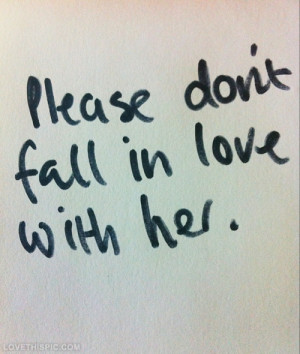 Please don't
fall in love
with her.
LOVETHISPIC.COM